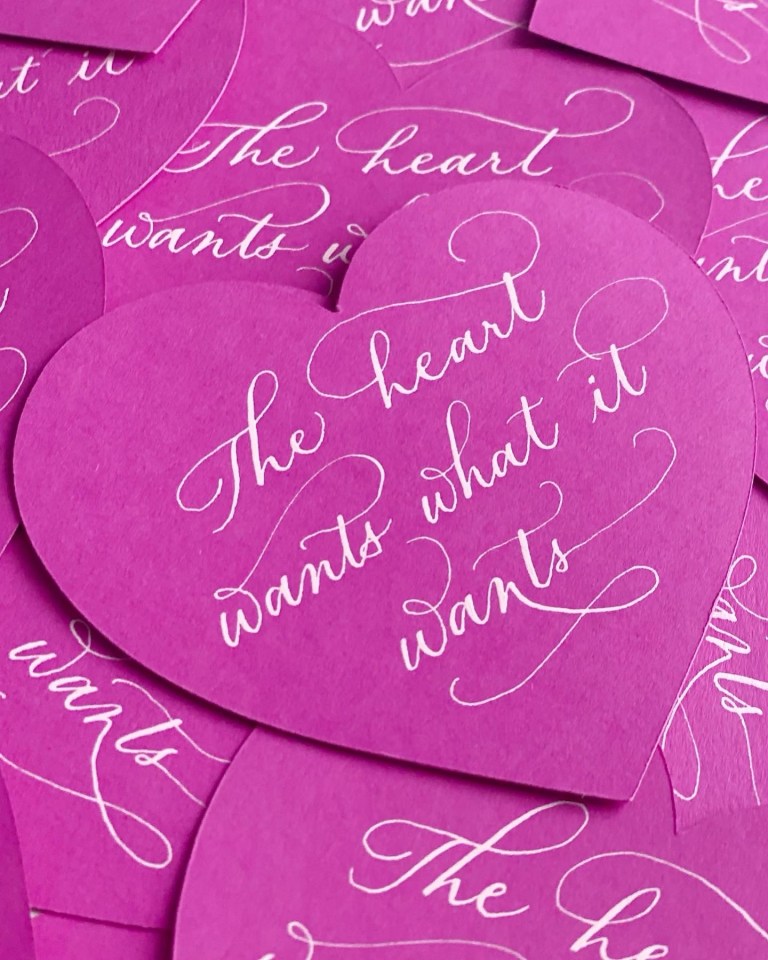 wan
at it
The heart
wants w
he
ants
The heart
wants what it
wants
wants
wants
The he